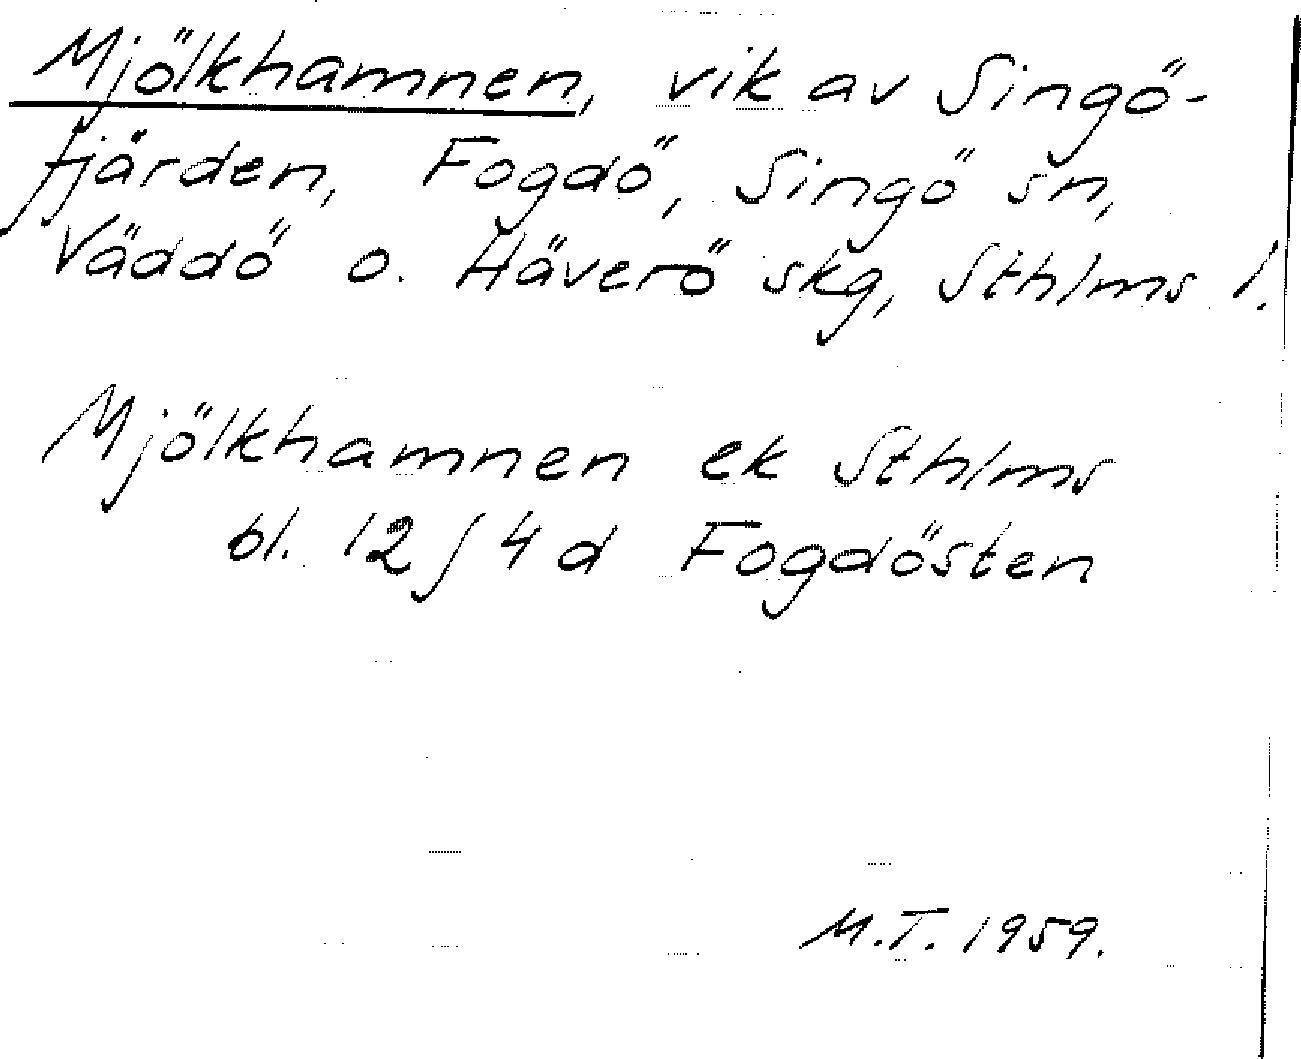 Mjölkhamnen, vik av Singö-
fjärden, Fogdö, Singö sn,
Väddö o. Häverö skg, Sthlms l.
Mjölkhamnen ek Sthlms
bl. 12J 4d Fogdösten
M.T. 1959.